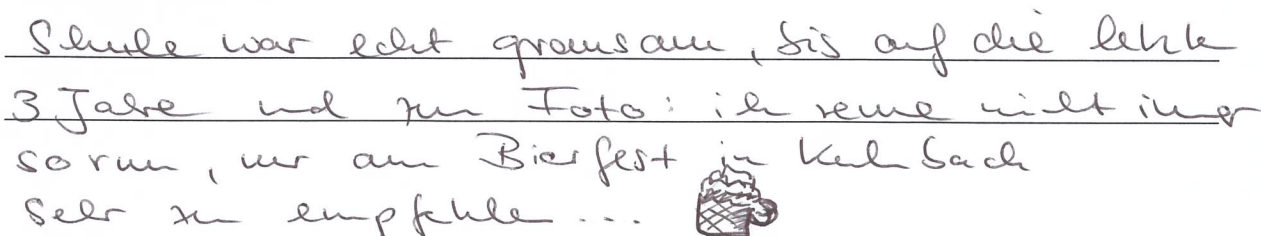 Schule war echt grausam, bis auf die letzte
3 Jahre und zum Foto: ich renne nicht immer
so rum, nur am Bierfest in Kulmbach
Sehr zu empfehlen...